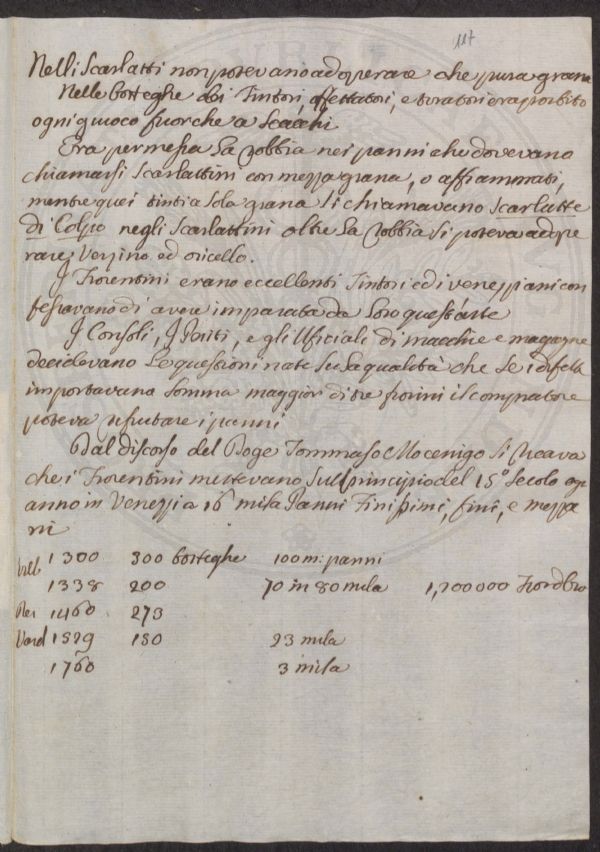 117
Nelli Scarlatti non potevano adoperare che pura grana
Nelle botteghe dei Tintori, affettatori, e tiratori era proibito
ogni giuoco fuorche a Scacchi
Era permessa la robbia nei panni che dovevano
chiamarsi Scarlattini con mezza grana, o affiammati,
mentre quei tinti a Sola grana Si chiamavano Scarlatte
di Colpo negli Scarlattini oltre la robbia Si poteva adope
rare Verzino ed oricello.
I Fiorentini erano eccellenti Tintori ed i veneziani con
fessavano di avere imparata da loro quest'arte
I Consoli, I Periti, e gli Ufficiali di macchie e magagne
decidevano le questioni nate su la qualità che Se i difetti
importavano Somma maggior di tre fiorini il compratore
poteva rifiutare i panni
Dal discorso del Doge Tommaso Mocenigo Si ricava
che i Fiorentini mettevano Sul principio del 15° Secolo ogn
anno in Venezia 16 mila Panni Finissimi, fini, e mezza
ni
Vill 1300 300 botteghe 100 m: panni
1338 200 70 in 80 mila 1,200000 Fior d'oro
1460 273
1529 150 23 mila
1760 3 mila